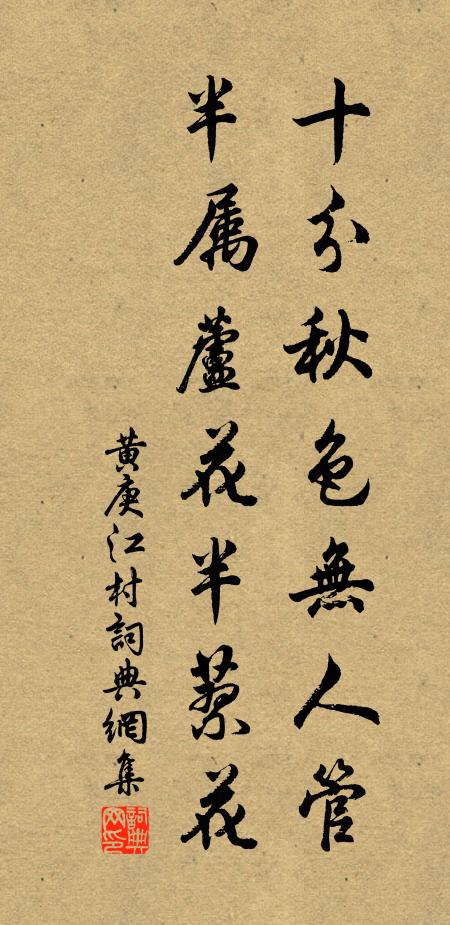 十分秋色無人管
半属蘆花半蓼花
黄庚江村詞典網集
詞典网印